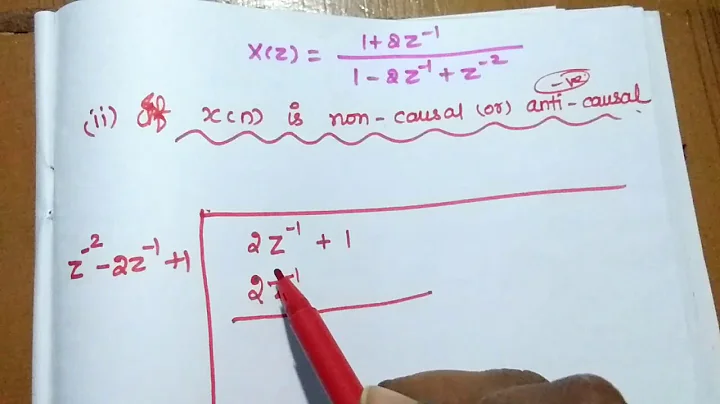 X(z) = 1+2z⁻¹ / 1-2z⁻¹+z⁻²
-ve
(ii) If x(n) is non-causal (or) anti-causal
z⁻²-2z⁻¹+1
2z⁻¹ + 1
2z⁻¹